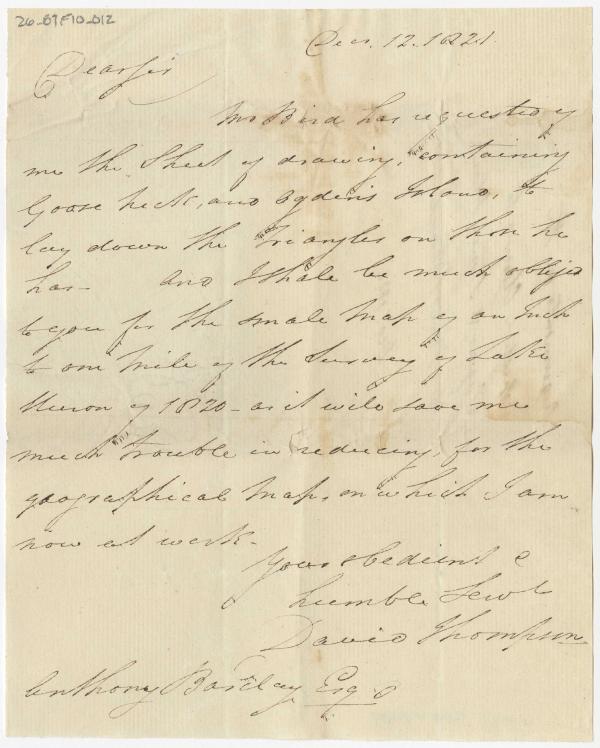 26_B7F10_D12
Decr. 12. 1821.
Dear Sir
Mr Bird has requested of
me the Sheet of drawing, containing
Goose Neck, and Ogdens Island, to
lay down the Triangles on those he
has— and I shall be much obliged
to you for the small Map of an Inch
to one Mile of the Survey of Lake
Huron of 1820 – as it will save me
much trouble in reducing, for the
geographical Map, on which I am
now at work–
Your obedient &
humble Servt
David Thompson
Anthony Barclay Esqr